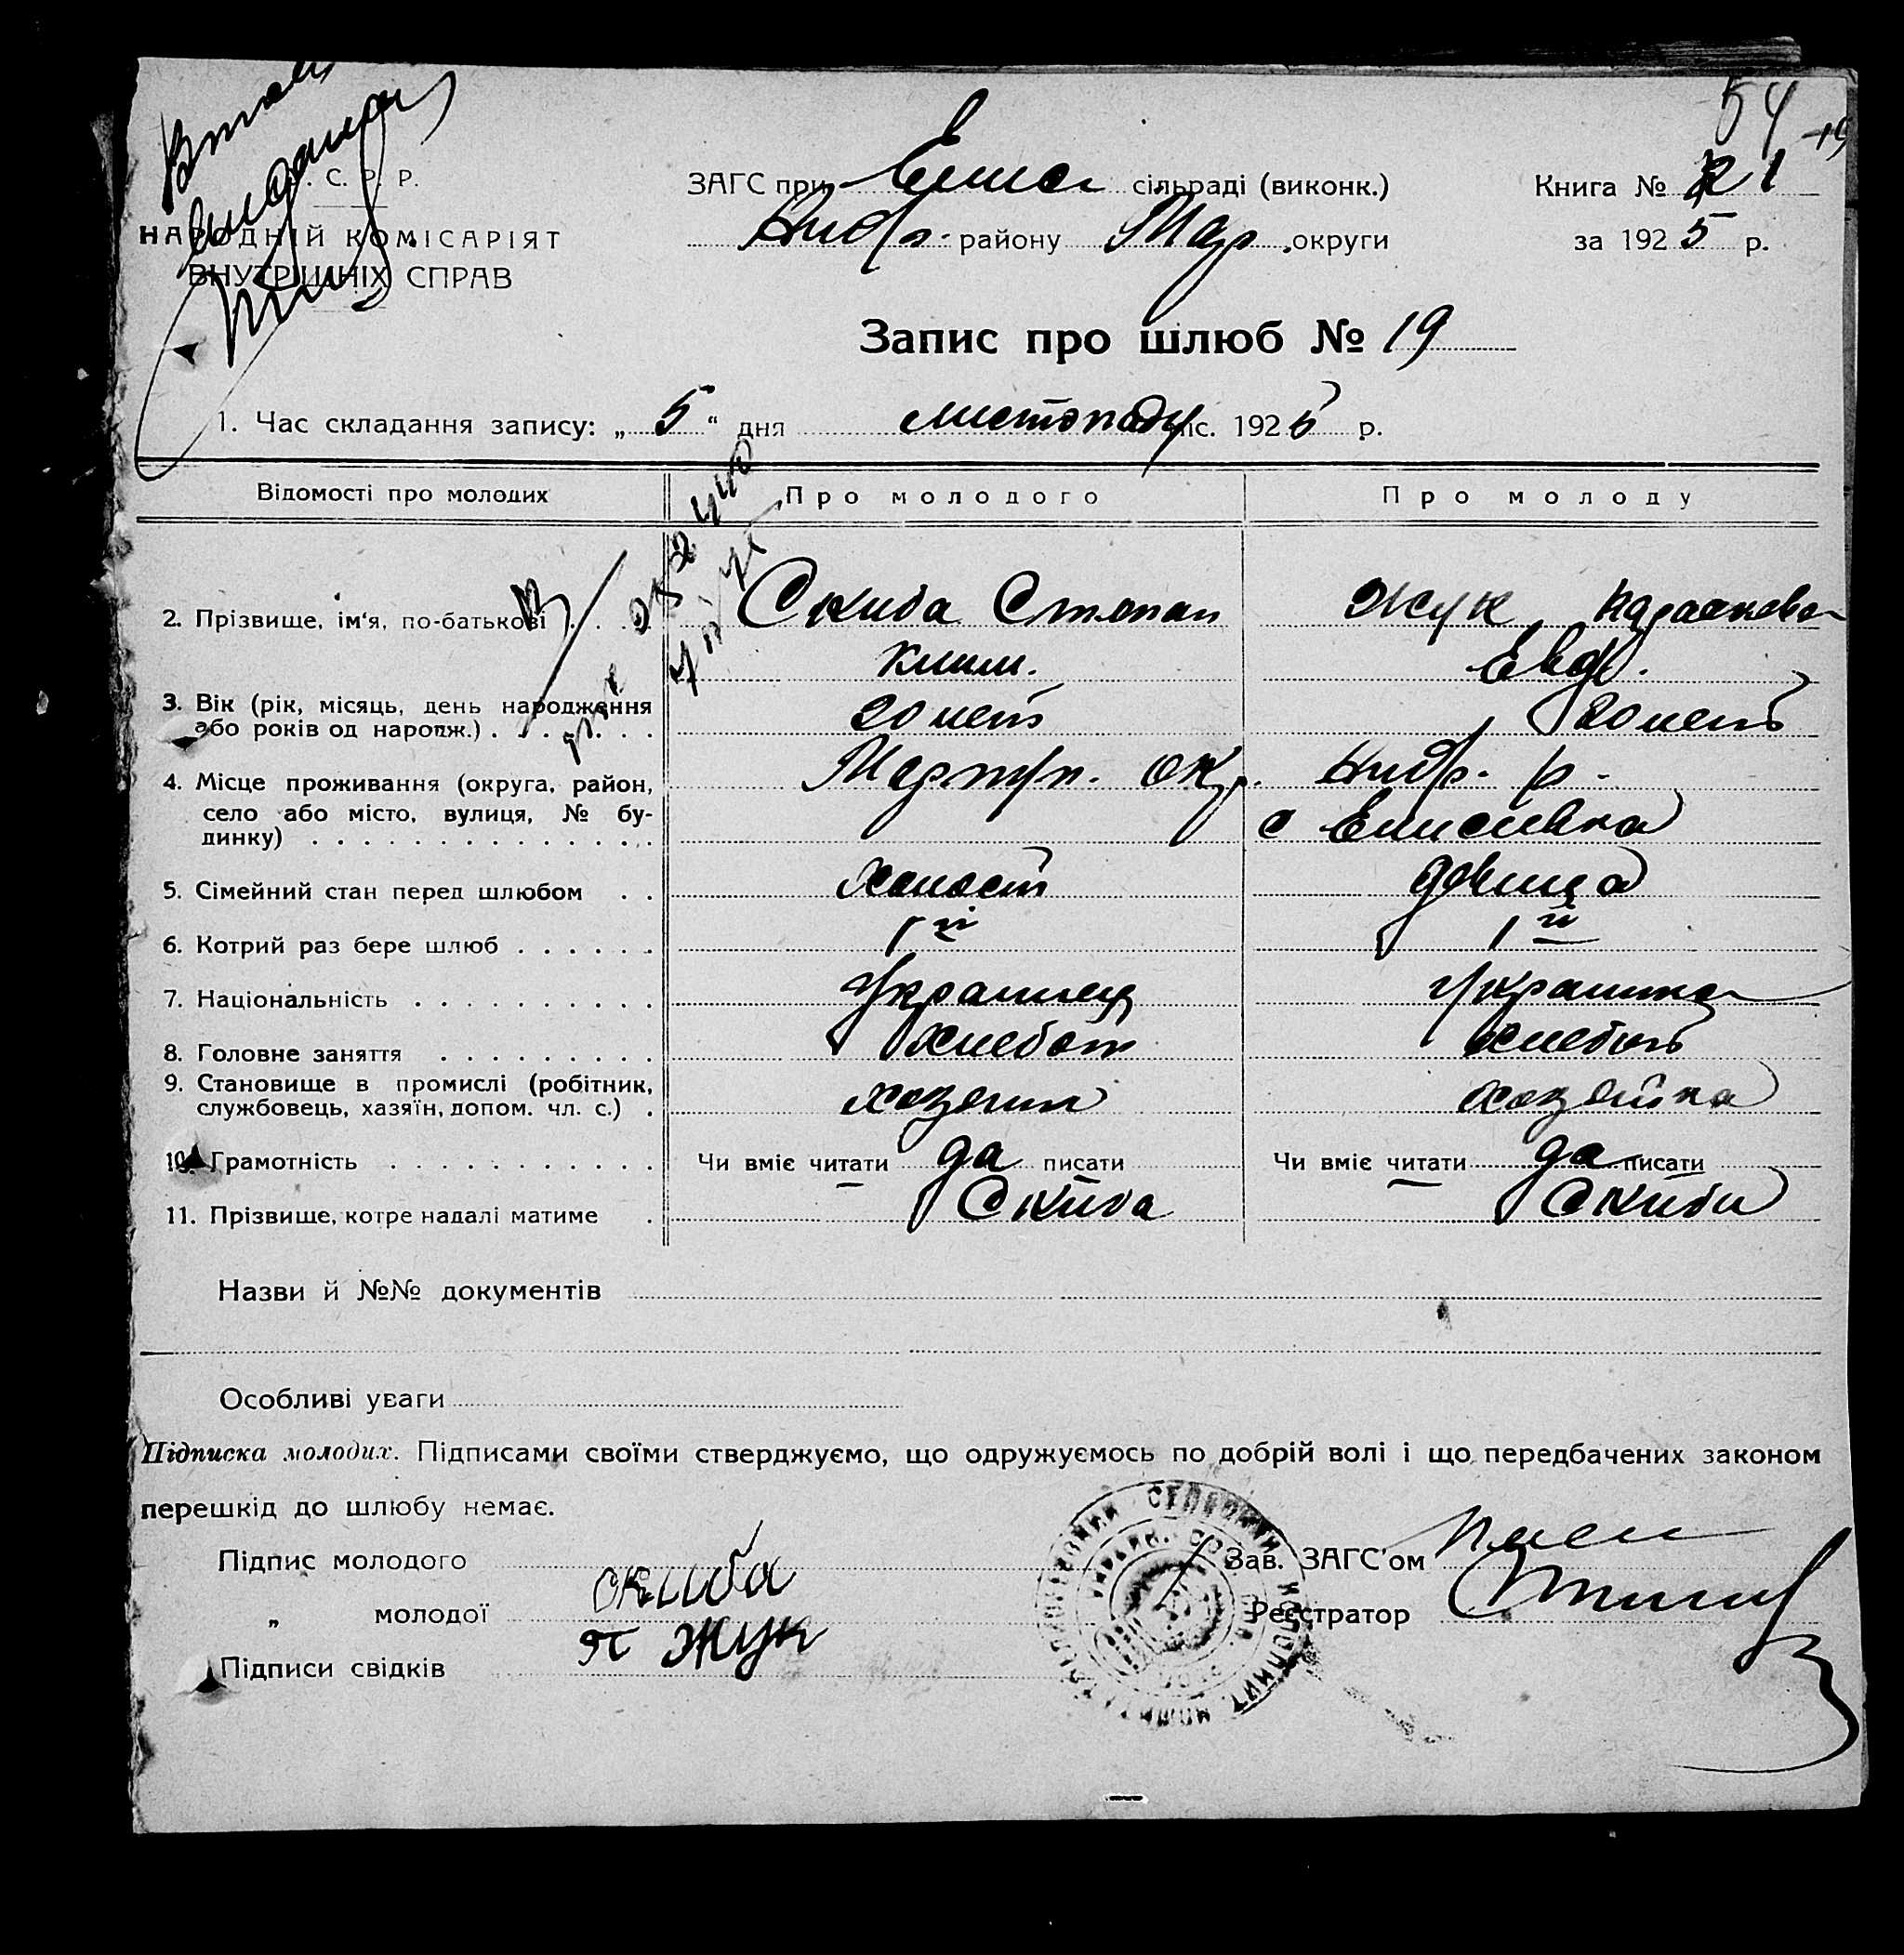 54
. С. Р. Р.
НАРОДНІЙ КОМІСАРІЯТ
ВНУТРІШНІХ СПРАВ
ЗАГС при Елисе сільраді (виконк.)
району Мар. округи
Книга № 1
за 1925 р.
Запис про шлюб № 19
1. Час складання запису: „5“ дня листопаду міс. 1925 р.
Відомості про молодих
Про молодого
Про молоду
2. Прізвище, ім'я, по-батькові . . .
Скиба Степан
Клим.
Жук Парасковья
Евдо.
3. Вік (рік, місяць, день народження
або років од нарож.) . . . . . . .
20 лет
20 лет
4. Місце проживання (округа, район,
село або місто, вулиця, № бу-
динку) . . . . . . . . . . . . . .
Мариуп. окр.
с Елисивка
5. Сімейний стан перед шлюбом . .
холост
девица
6. Котрий раз бере шлюб . . . . . .
1й
1й
7. Національність . . . . . . . . . .
Украинец
Украинка
8. Головне заняття . . . . . . . . .
хлебоп
9. Становище в промислі (робітник,
службовець, хазяїн, допом. чл. с.) .
хозяин
хозяйка
10. Грамотність . . . . . . . . . . .
Чи вміє читати да писати
Чи вміє читати да писати
11. Прізвище, котре надалі матиме .
Скиба
Скиби
Назви й №№ документів
Особливі уваги
Підписка молодих. Підписами своїми стверджуємо, що одружуємось по добрій волі і що передбачених законом
перешкід до шлюбу немає.
Підпис молодого
скиба
„ молодої
п Жук
Підписи свідків
Зав. ЗАГС'ом
Реєстратор